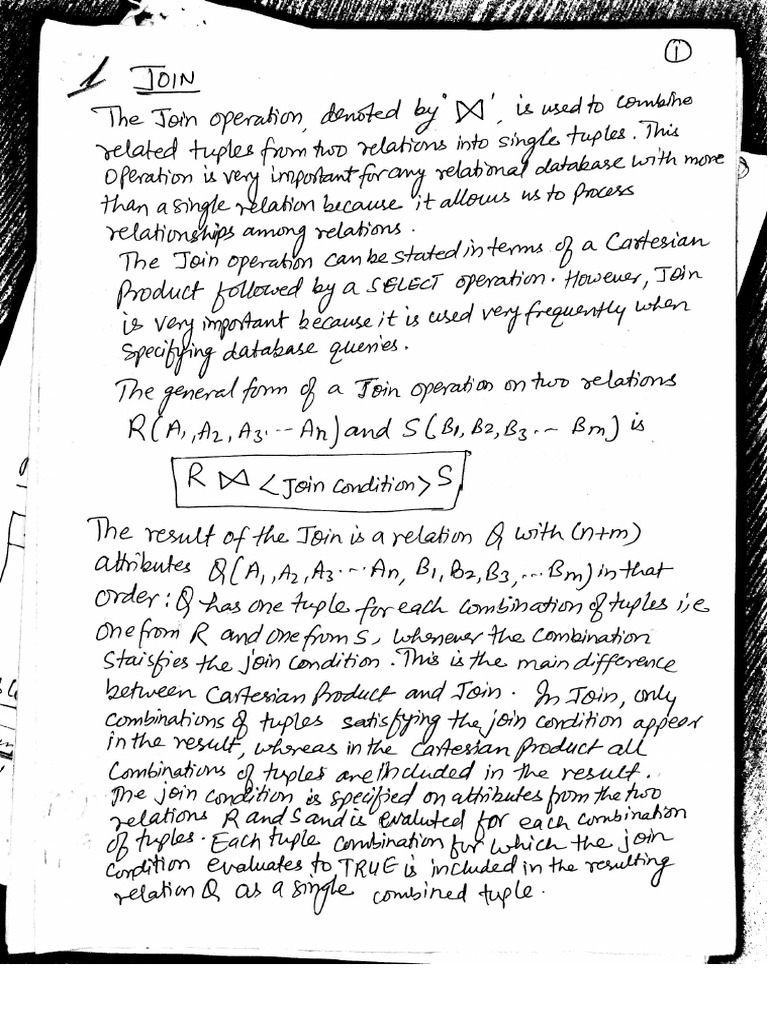 ①
1 JOIN
The Join operation, denoted by '⋈', is used to combine
related tuples from two relations into single tuples. This
operation is very important for any relational database with more
than a single relation because it allows us to process
relationships among relations.
The Join operation can be stated in terms of a Cartesian
Product followed by a SELECT operation. However, Join
is very important because it is used very frequently when
specifying database queries.
The general form of a Join operation on two relations
R(A1, A2, A3 --- An) and S(B1, B2, B3 --- Bm) is
R ⋈ <Join condition> S
The result of the Join is a relation Q with (n+m)
attributes Q(A1, A2, A3 --- An, B1, B2, B3, --- Bm) in that
order: Q has one tuple for each combination of tuples i,e
one from R and one from S, whenever the combination
Staisfies the join condition. This is the main difference
between Cartesian Product and Join. In Join, only
combinations of tuples satisfying the join condition appeer
in the result, whereas in the Cartesian Product all
combinations of tuples are included in the result.
The join condition is specified on attributes from the two
relations R and S and is evaluted for each combination
of tuples. Each tuple combination for which the join
condition evaluates to TRUE is included in the resulting
relation Q as a single combined tuple.